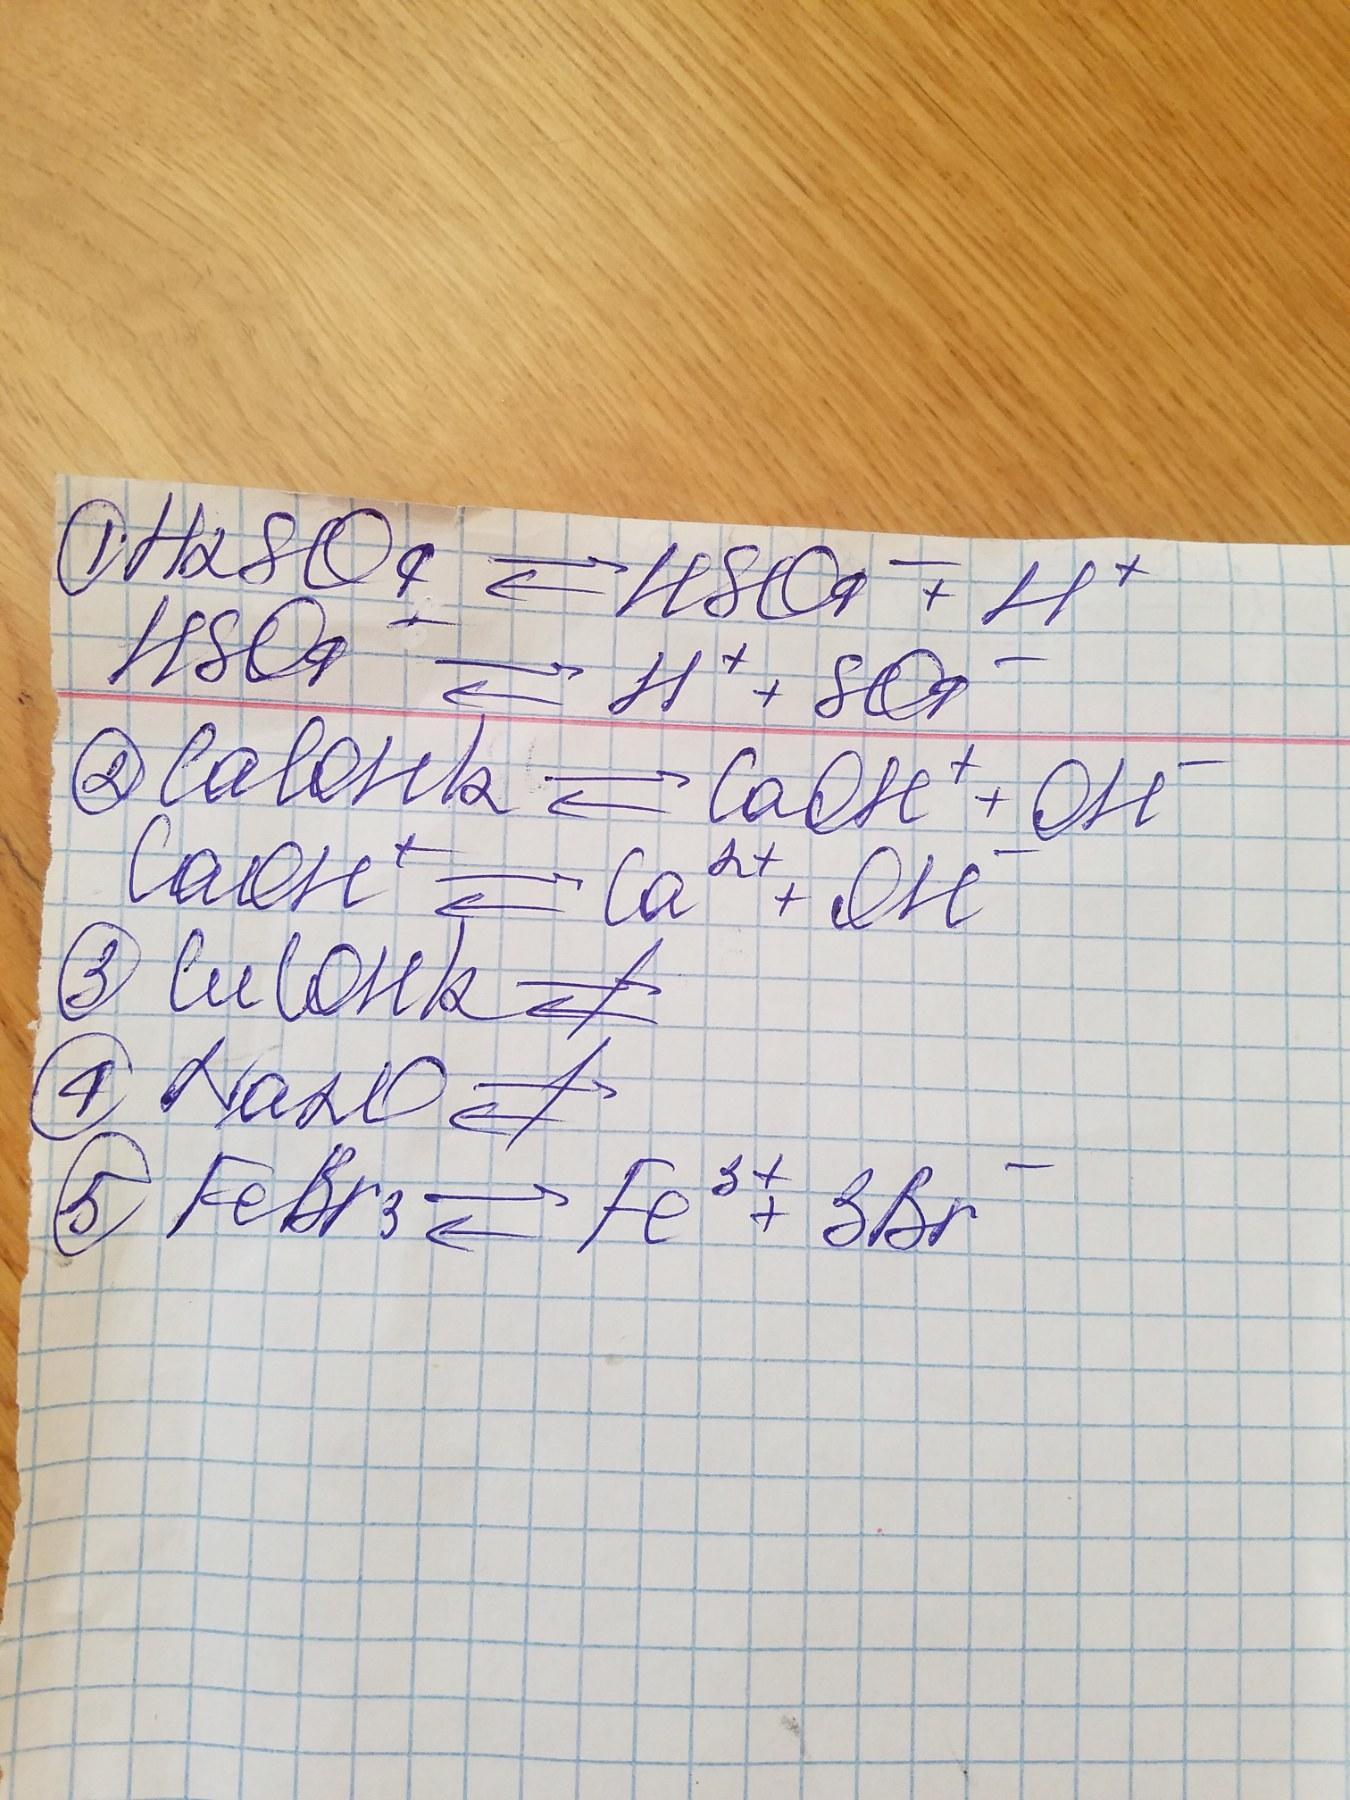 ① H2SO4 ⇌ HSO4⁻ + H⁺
HSO4⁻ ⇌ H⁺ + SO4⁻
② Ca(OH)2 ⇌ CaOH⁺ + OH⁻
CaOH⁺ ⇌ Ca²⁺ + OH⁻
③ Cu(OH)2 ⇌̸
④ Na2O ⇌̸
⑤ FeBr3 ⇌ Fe³⁺ + 3Br⁻